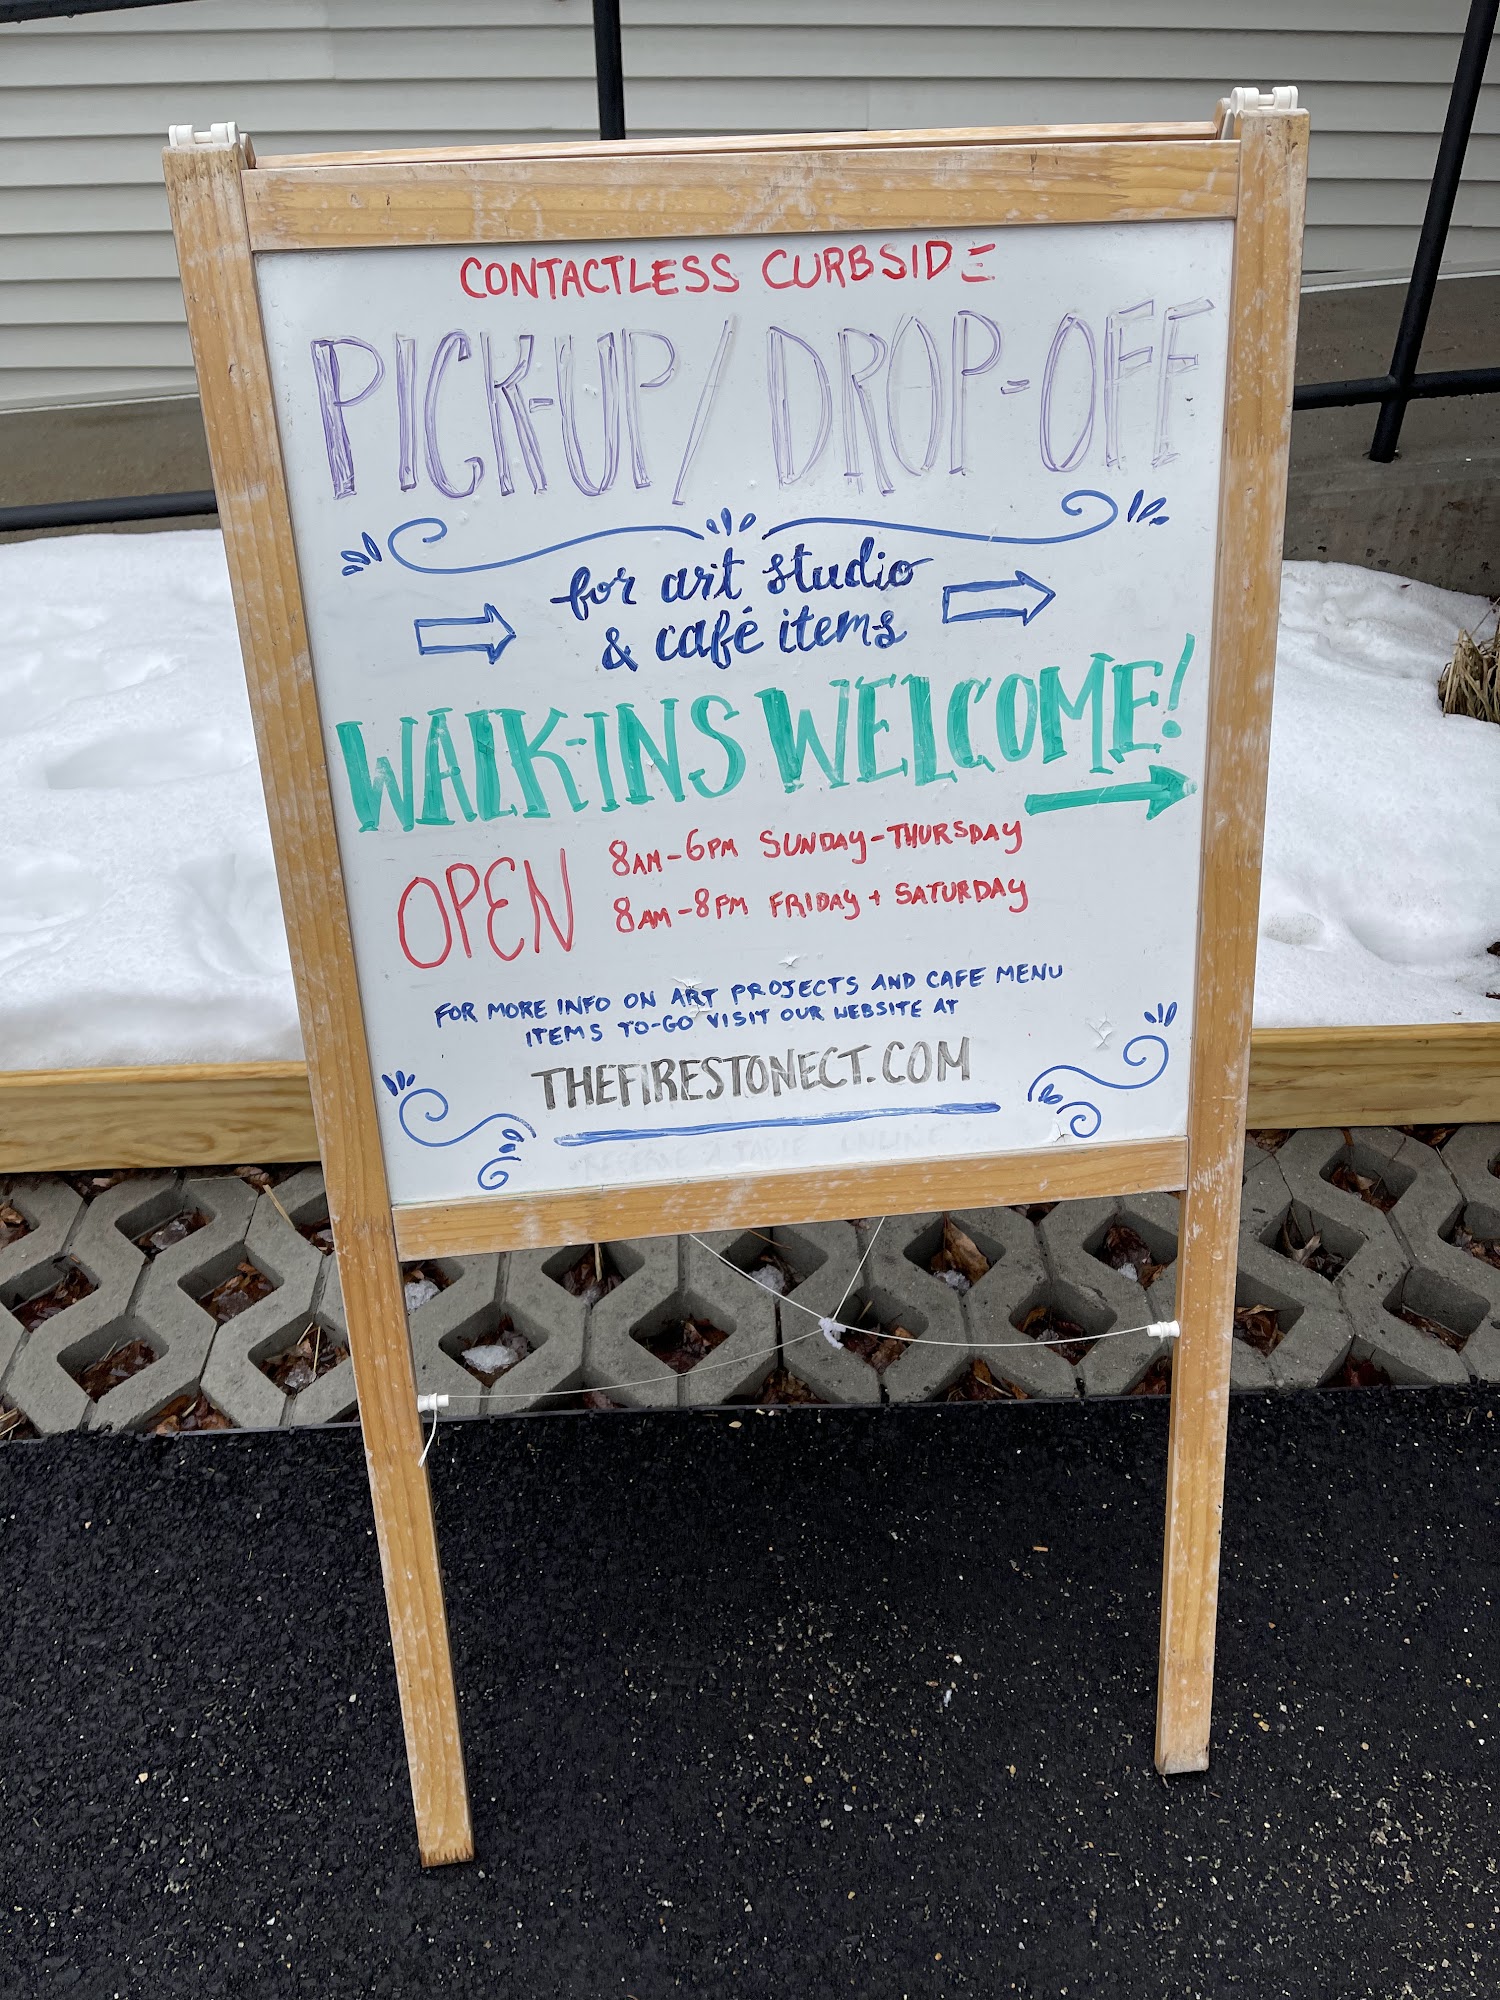 CONTACTLESS CURBSIDE
PICK-UP/DROP-OFF
for art studio
& café items
WALK-INS WELCOME!
OPEN
8AM-6PM SUNDAY-THURSDAY
8AM-8PM FRIDAY + SATURDAY
FOR MORE INFO ON ART PROJECTS AND CAFE MENU
ITEMS TO-GO VISIT OUR WEBSITE AT
THEFIRESTONECT.COM
RESERVE A TABLE ONLINE